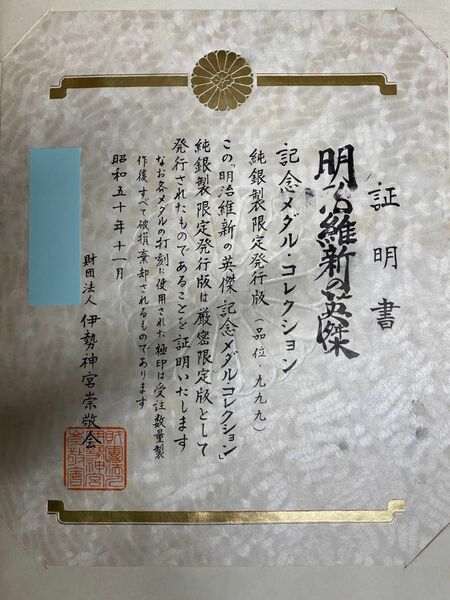 証明書
明治維新の英傑
記念メダル・コレクション
純銀製限定発行版（品位・九九九）
この「明治維新の英傑 記念メダル・コレクション」
純銀製限定発行版は厳密限定版として
発行されたものであることを証明いたします
なお各メダルの打刻に使用された極印は受注数量製
作後すべて破損棄却されるものであります
昭和五十年十一月
財団法人 伊勢神宮崇敬会
財團法人
伊勢神宮
崇敬會